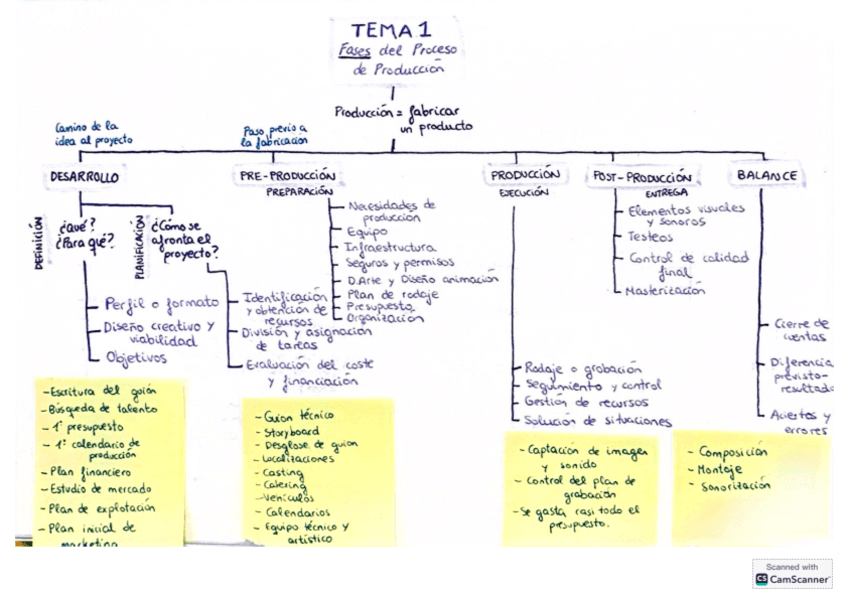 TEMA 1
Fases del Proceso
de Producción
Producción = fabricar
un producto
Camino de la
idea al proyecto
Paso previo a
la fabricación
DESARROLLO
DEFINICIÓN
¿Qué?
¿Para qué?
Perfil o formato
Diseño creativo y
viabilidad
Objetivos
PLANIFICACIÓN
¿Cómo se
afronta el
proyecto?
Identificación
y obtención de
recursos
División y asignación
de tareas
Evaluación del coste
y financiación
PRE-PRODUCCIÓN
PREPARACIÓN
Necesidades de
producción
Equipo
Infraestructura
Seguros y permisos
D.Arte y Diseño animación
Plan de rodaje
Presupuesto
Organización
PRODUCCIÓN
EJECUCIÓN
Rodaje o grabación
Seguimiento y control
Gestión de recursos
Solución de situaciones
POST-PRODUCCIÓN
ENTREGA
Elementos visuales
y sonoros
Testeos
Control de calidad
final
Masterización
BALANCE
Cierre de
cuentas
Diferencia
previsto-
resultado
Aciertos y
errores
- Escritura del guión
- Búsqueda de talento
- 1º presupuesto
- 1º calendario de
producción
- Plan financiero
- Estudio de mercado
- Plan de explotación
- Plan inicial de
marketing
- Guion técnico
- Storyboard
- Desglose de guion
- Localizaciones
- Casting
- Catering
- Vehículos
- Calendarios
- Equipo técnico y
artístico
- Captación de imagen
y sonido
- Control del plan de
grabación
- Se gasta casi todo el
presupuesto.
- Composición
- Montaje
- Sonorización
Scanned with
CS CamScanner